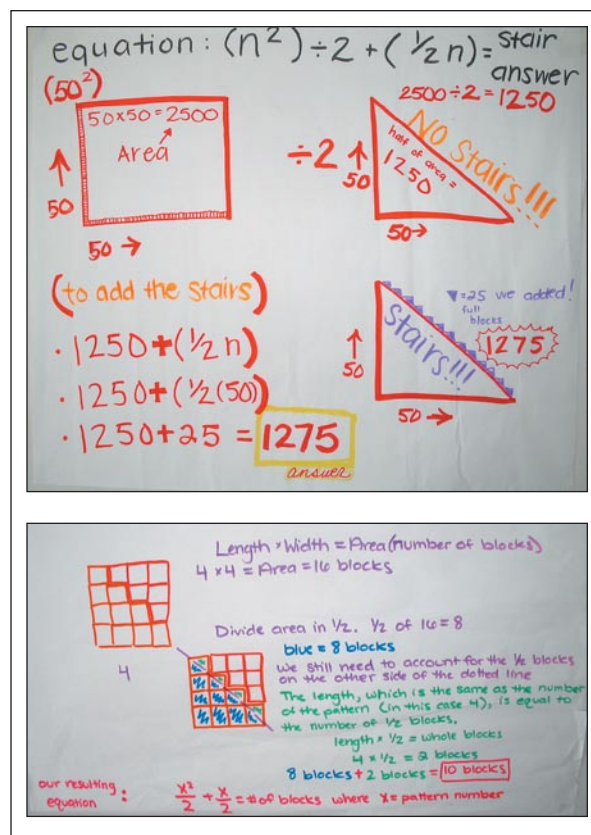 equation : (n²) ÷ 2 + (½ n) = stair answer
(50²)
50 x 50 = 2500
Area
50
50 →
2500 ÷ 2 = 1250
÷2
half of area =
1250
NO Stairs!!!
50
50 →
(to add the stairs)
· 1250 + (½ n)
· 1250 + (½ (50))
· 1250 + 25 = 1275
answer
Stairs!!!
= 25 we added!
full
blocks
1275
50
50 →
Length × Width = Area (number of blocks)
4 × 4 = Area = 16 blocks
4
Divide area in ½. ½ of 16 = 8
blue = 8 blocks
we still need to account for the ½ blocks
on the other side of the dotted line
The length, which is the same as the number
of the pattern (in this case 4), is equal to
the number of ½ blocks.
length × ½ = whole blocks
4 × ½ = 2 blocks
8 blocks + 2 blocks = 10 blocks
our resulting
equation :
x²/2 + x/2 = # of blocks where x = pattern number